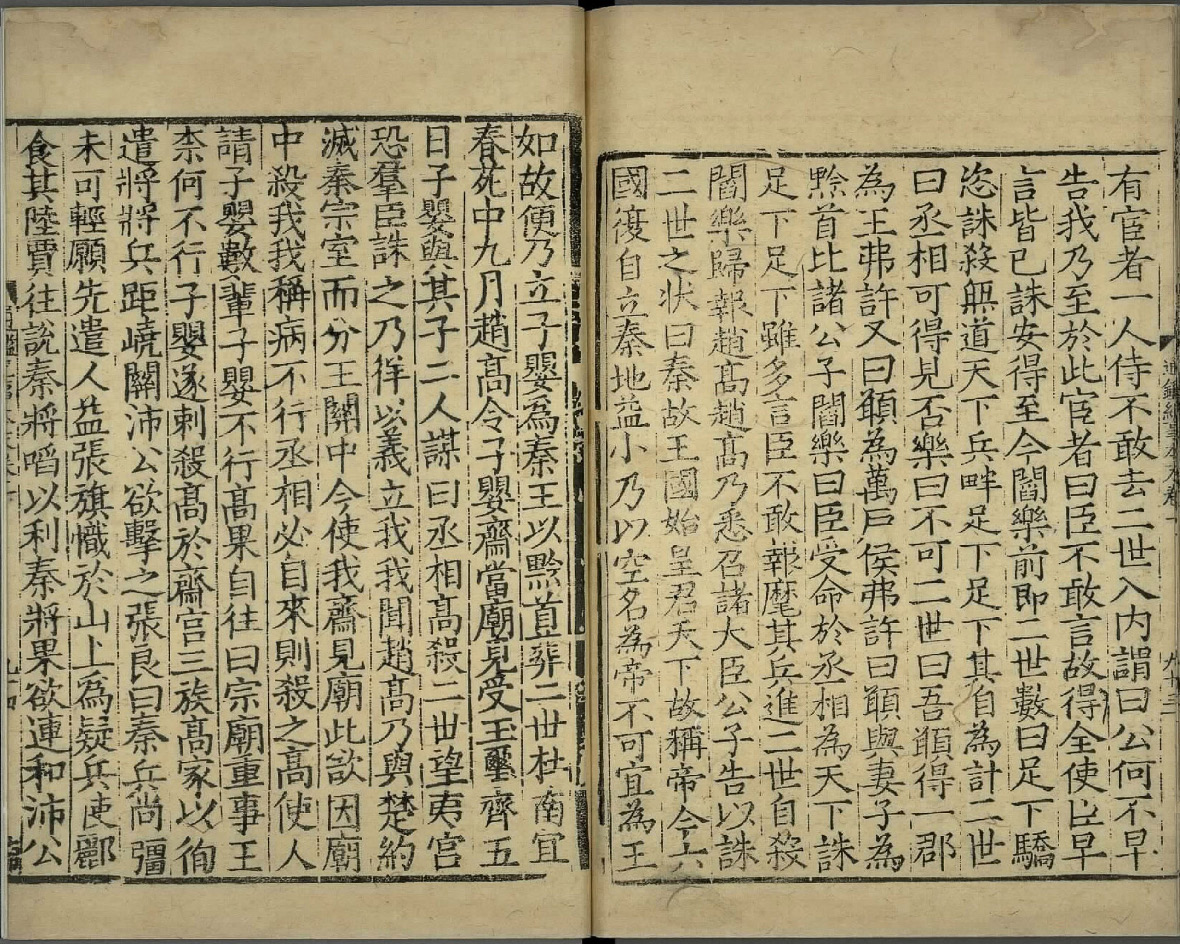 有宦者一人侍不敢去二世入内謂曰公何不早
告我乃至於此宦者曰臣不敢言故得全使臣早
言皆已誅安得至今閻樂前即二世數曰足下驕
恣誅殺無道天下兵畔足下足下其自為計二世
曰丞相可得見否樂曰不可二世曰吾願得一郡
為王弗許又曰願為萬戶侯弗許曰願與妻子為
黔首比諸公子閻樂曰臣受命於丞相為天下誅
足下足下雖多言臣不敢報麾其兵進二世自殺
閻樂歸報趙髙趙髙乃悉召諸大臣公子告以誅
二世之状曰秦故王國始皇君天下故稱帝今六
國復自立秦地益小乃以空名為帝不可宜為王
如故便乃立子嬰為秦王以黔首葬二世杜南宜
春苑中九月趙髙令子嬰齋當廟見受王璽齊五
日子嬰與其子二人謀曰丞相髙殺二世望夷宮
恐羣臣誅之乃徉以義立我我聞趙髙乃與楚約
滅秦宗室而分王關中今使我齋見廟此欲因廟
中殺我我稱病不行丞相必自來則殺之髙使人
請子嬰數輩子嬰不行髙果自往曰宗廟重事王
柰何不行子嬰遂刺殺髙於齋宮三族髙家以徇
遣將將兵距嶢關沛公欲擊之張良曰秦兵尚彊
未可輕願先遣人益張旗幟於山上為疑兵使酈
食其陸賈往說秦將啗以利秦將果欲連和沛公